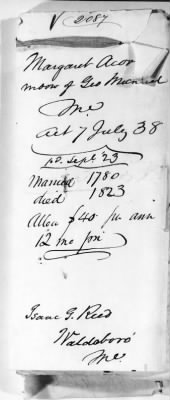 2087
Margaret Acor
widow of Geo Me
Act 7 July 38
pd. Sept 23
Married 1780
died 1823
Allow $40 pr ann
12 mo
Isaac G. Reed
Waldoboro'
Me.